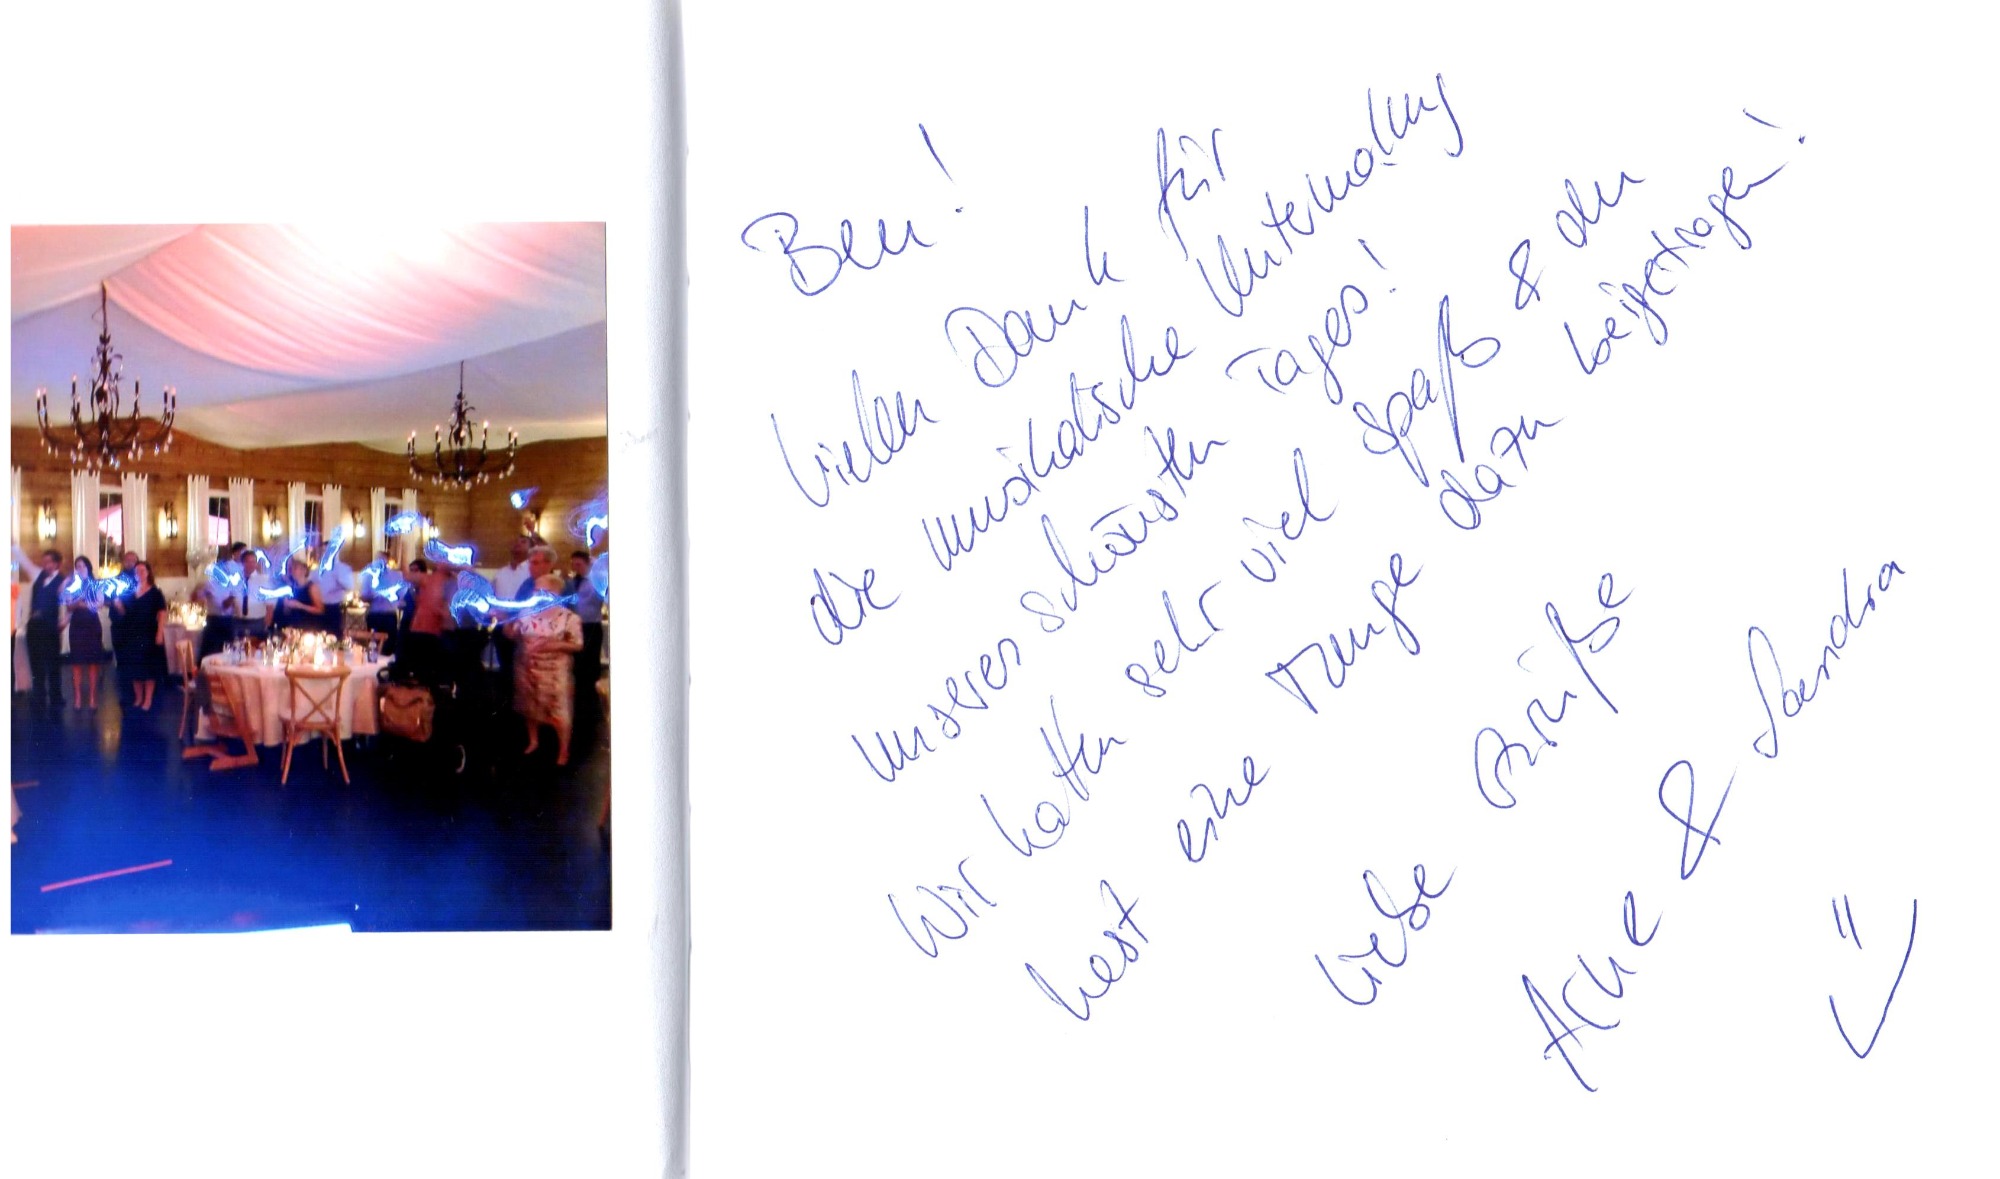 Ben!
Vielen Dank für
die musikalische Untermalung
unseres schönsten Tages!
Wir hatten sehr viel Spaß & du
hast eine Menge dazu beigetragen!
Liebe Grüße
Arne & Sandra